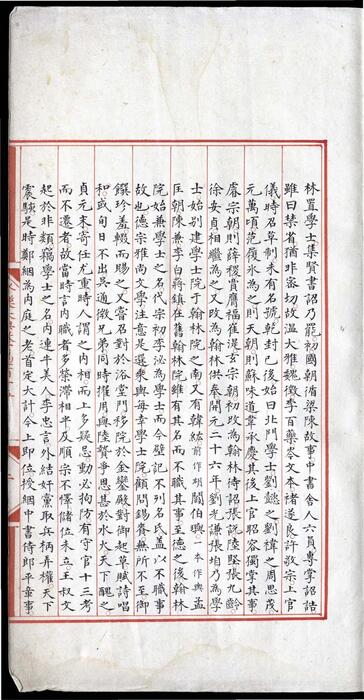 林置學士集賢書詔乃罷初國朝循梁陳故事中書舍人六員專掌詔誥
雖曰禁省猶非密切故溫大雅魏徵李百藥岑文本褚遂良許敬宗上官
儀時召草制未有名號乾封已後始曰北門學士劉懿之劉禕之周思茂
元萬頃范履氷為之則天朝則蘇味道韋承慶其後上官昭容獨掌其事
睿宗朝則薛稷賈膺福崔湜玄宗朝初改為翰林待詔張說陸堅張九齡
徐安貞相繼為之又改為翰林供奉開元二十六年劉光謙張垍乃為學
士始别建學士院于翰林院之南又有韓紘前作翃閻伯璵一本作輿孟
匡朝陳兼李白蔣鎮在舊翰林院雖有其名而不職其事至德之後翰林
院始兼學士之名代宗初李泌為學士而今壁記不列名氏盖以不職事
故也德宗雅尚文學注意是選乘輿每幸學士院顧問錫賚無所不至御
饌珍羞輟而賜之又嘗召對於浴堂門移院於金鑾殿對御起草賦詩唱
和或旬日不出吳通微兄弟同時擢用與陸贄爭恩甚於水火天下醜之
貞元末寄任尤重時人謂之内相而上多疑忌動必拘防有守官十三考
而不遷者故當時言内職者多榮滯相半及順宗不懌儲位未立王叔文
起於非類竊學士之名内連牛美人李忠言外結奸黨取兵柄弄權天下
震駭是時鄭絪為内庭之老首定大計今上即位授絪中書侍郎平章事